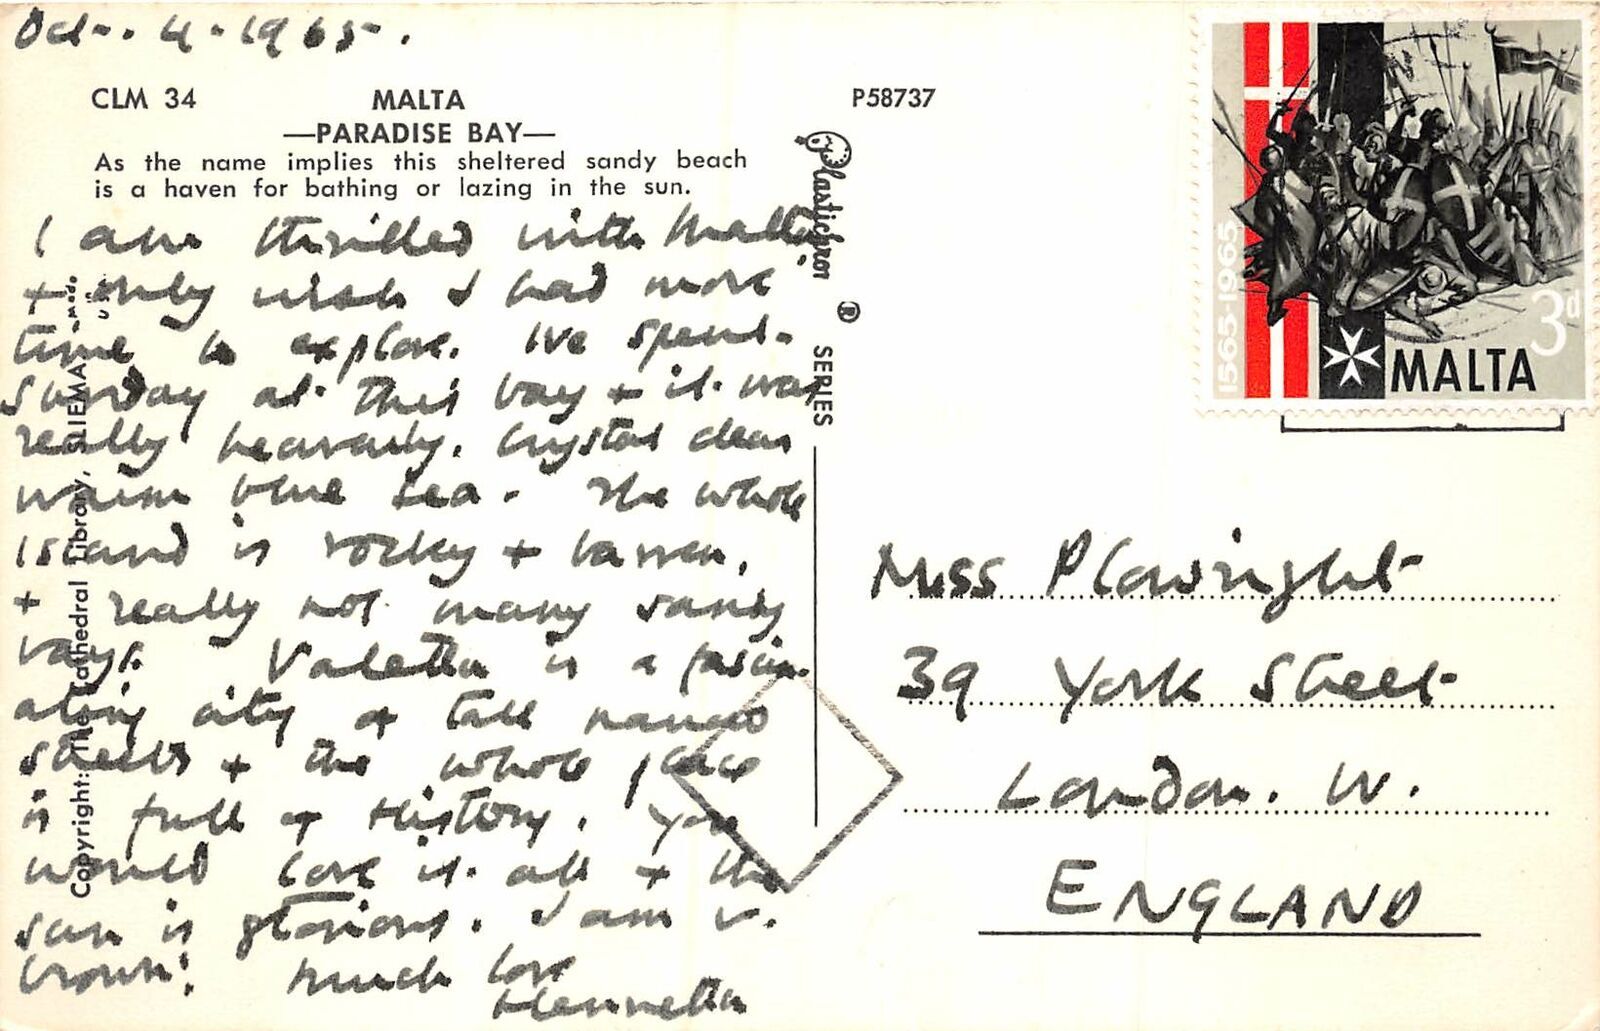 Oct. 4. 1965.
CLM 34
MALTA
P58737
—PARADISE BAY—
As the name implies this sheltered sandy beach
is a haven for bathing or lazing in the sun.
I am thrilled with Malta
+ only wish I had more
time to explore. I've spent
Sunday at this bay + it was
really heavenly. Crystal clear
warm blue sea. The whole
island is rocky + barren,
+ really not many sandy
bays. Valetta is a fascin-
ating city of tall narrow
streets + the whole place
is full of History. You
would love it all + the
sun is glorious. I am v.
brown! Much love
Henrietta
Copyright: The Cathedral Library, SLIEMA
Made
Plastichrom
®
SERIES
1565-1965
3d
MALTA
Miss Plowright
39 York Street
London. W.
ENGLAND